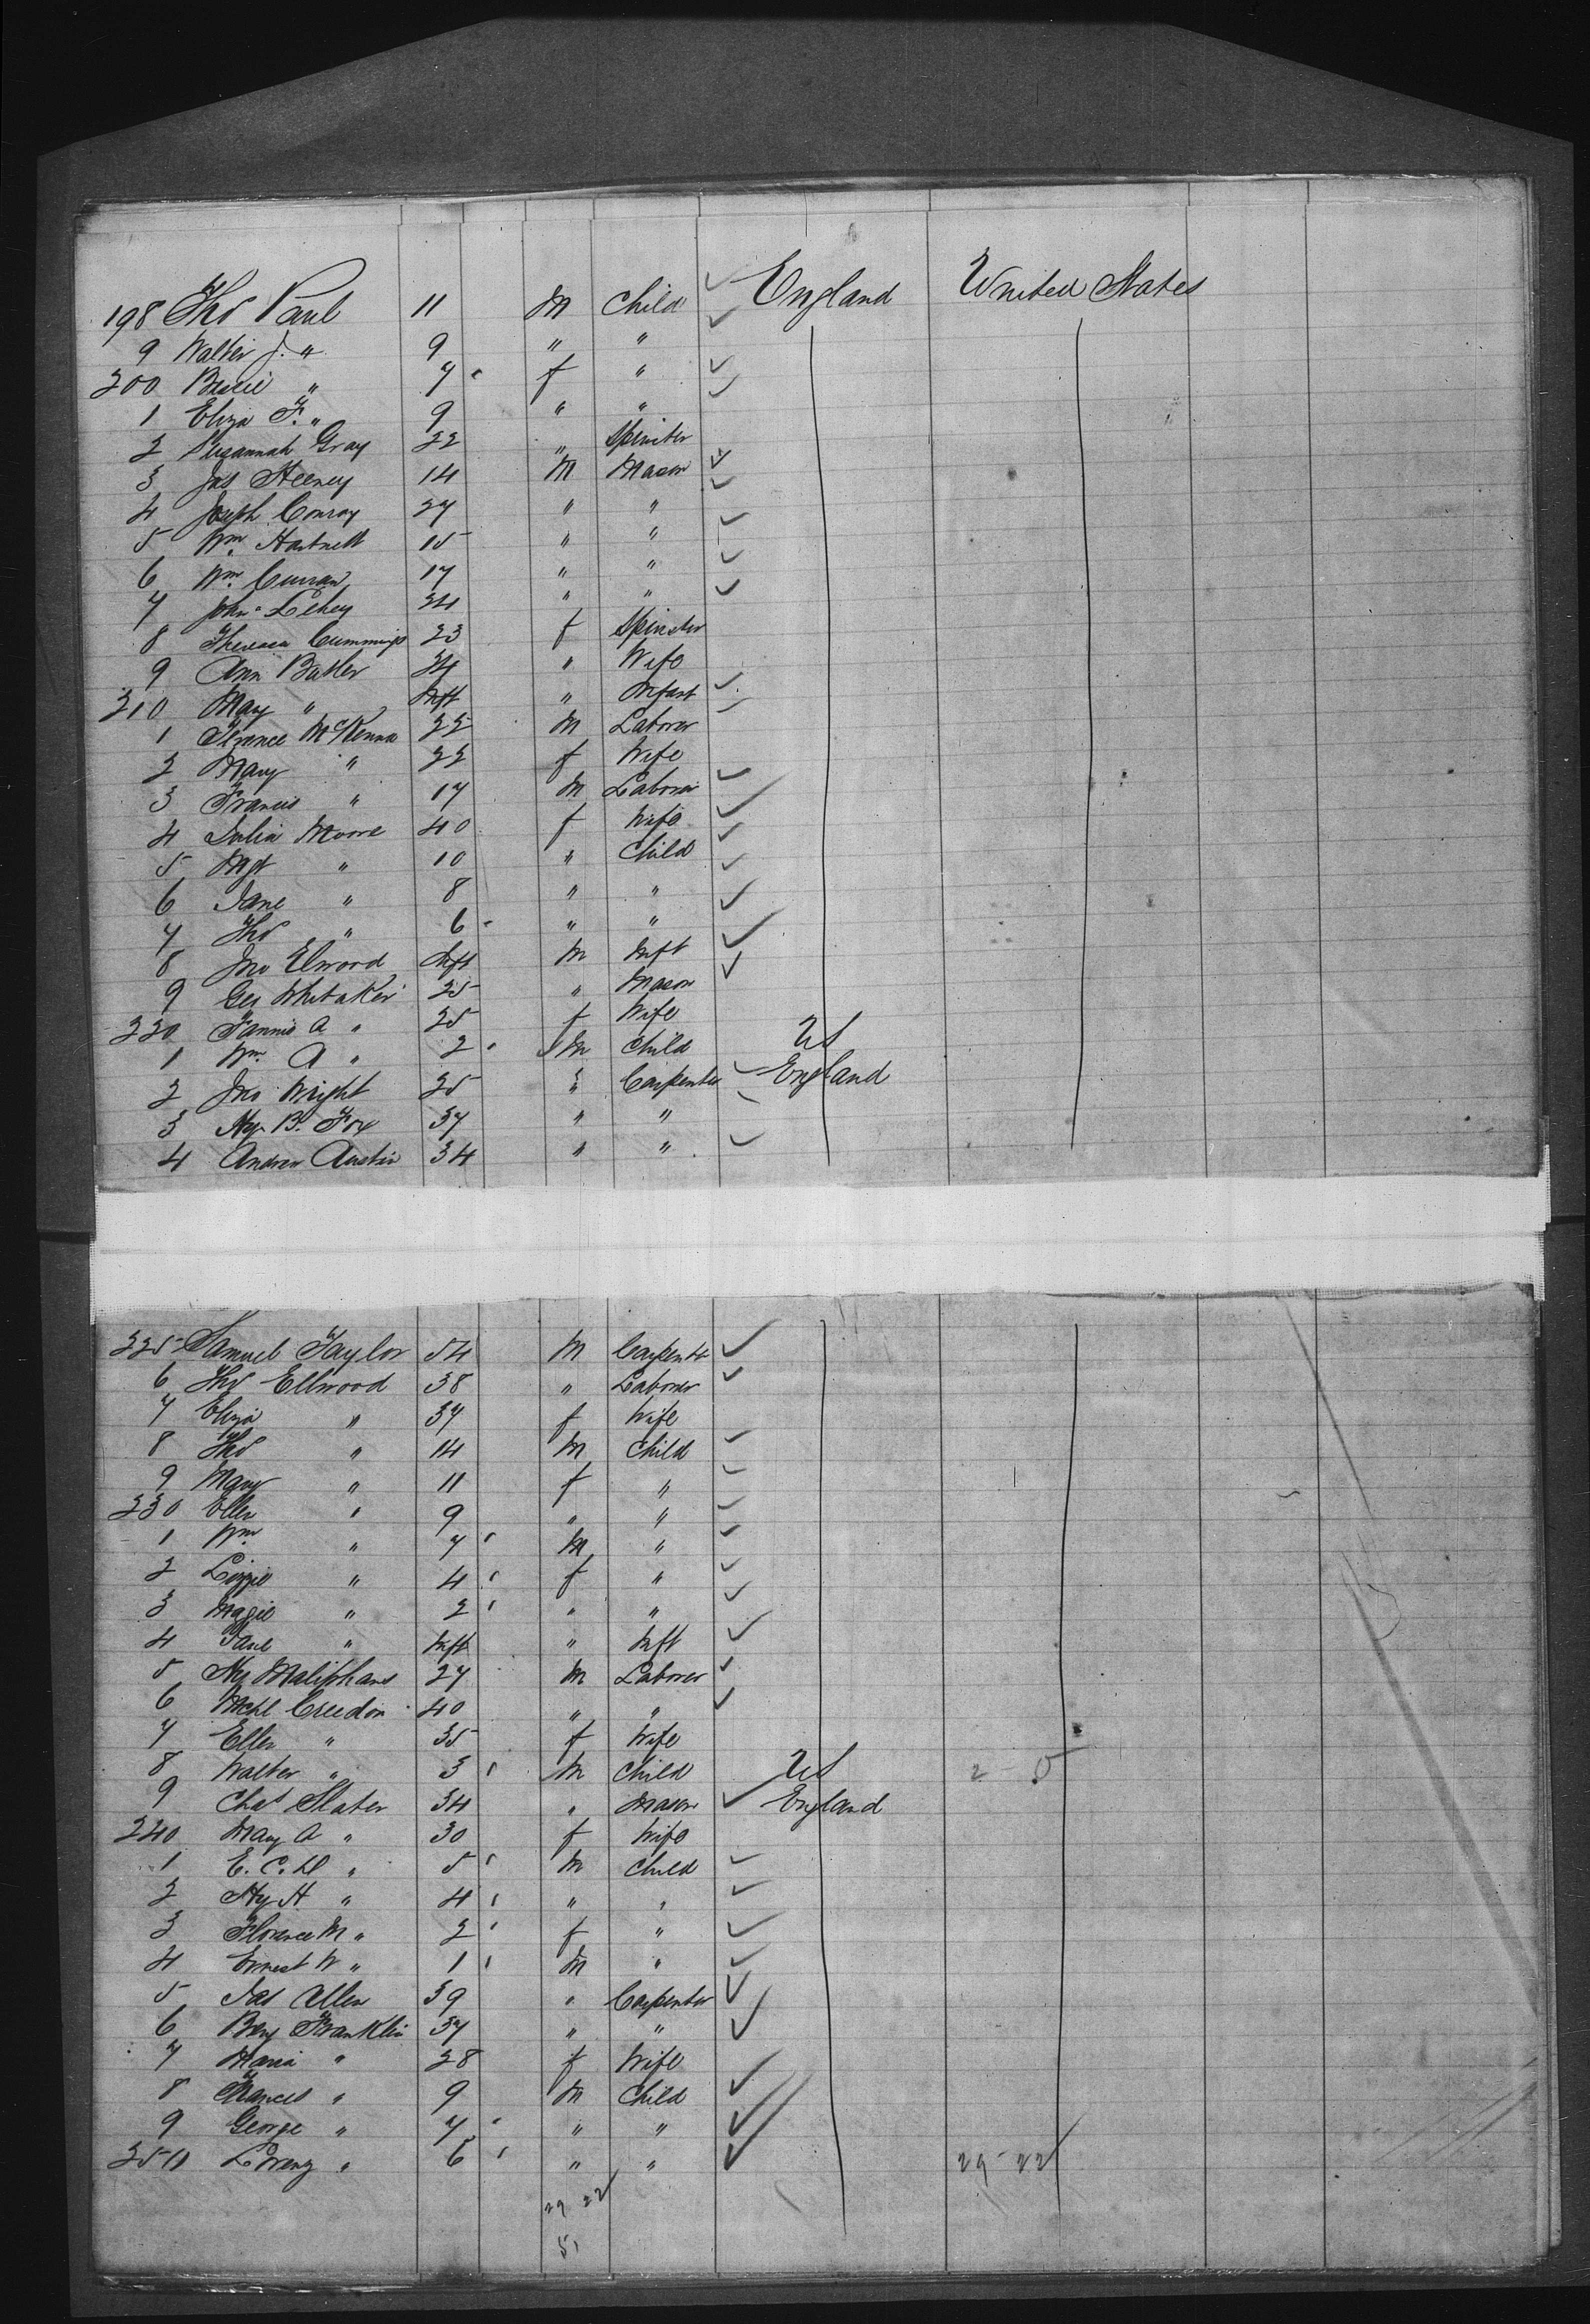 198 Thos Paul 11 M Child England United States
9 Walter J. " 9 " "
200 Bessie " 7 f "
1 Eliza F. " 9 " "
2 Susannah Gray 22 " Spinster
3 Jas Heeney 14 M Mason
4 Joseph Conroy 27 " "
5 Wm Hartnett 15 " "
6 Wm Curran 17 " "
7 John Lehey 24 " "
8 Theresa Cummings 23 f Spinster
9 Ann Butler 24 " Wife
210 May " Inft " Infant
1 Terence McKenna 22 M Laborer
2 Mary " 22 f Wife
3 Francis " 17 M Laborer
4 Julia Moore 40 f Wife
5 Mgt " 10 " Child
6 Jane " 8 " "
7 Thos " 6 " "
8 Jno Elwood Inft M Inft
9 Geo Whitaker 25 " Mason
220 Fannie A " 25 f Wife
1 Wm A " 2 M Child US
2 Jno Wright 25 " Carpenter England
3 Hy B. Fox 37 " "
4 Andrew Austin 34 " "
225 Samuel Taylor 54 M Carpentr
6 Thos Ellwood 38 " Laborer
7 Eliza " 37 f Wife
8 Thos " 14 M Child
9 Mary " 11 f "
230 Ellen " 9 " "
1 Wm " 7 M "
2 Lizzie " 4 f "
3 Magie " 2 " "
4 Jane " Inft " Inft
5 Hy Maliphans 27 M Laborer
6 Michl Creedon 40 " "
7 Ellen " 35 f Wife
8 Walter " 3 M Child US 2 - 5
9 Chas Slater 34 " Mason England
240 Mary A " 30 f Wife
1 E. C. H " 5 M Child
2 Hy H " 4 " "
3 Florence M " 2 f "
4 Ernest W " 1 M "
5 Jas Allen 39 " Carpenter
6 Benj Franklin 37 " "
7 Maria " 28 f Wife
8 Francis " 9 M Child
9 George " 7 " "
250 " 6 " " 29 - 22
29 22
51